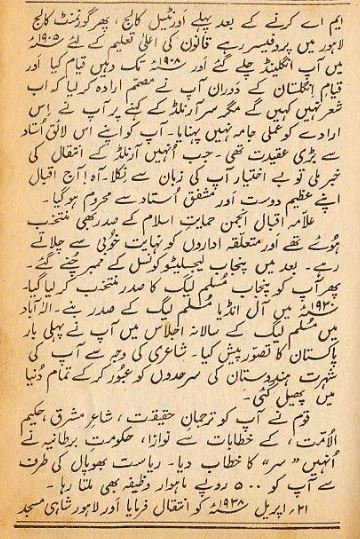 ایم اے کرنے کے بعد پہلے اَورنٹیل کالج، پھر گورنمنٹ کالج
لاہور میں پروفیسر رہے قانون کی اعلیٰ تعلیم کے لئے ۱۹۰۵ء
میں آپ انگلینڈ چلے گئے اَور ۱۹۰۸ء تک وہیں قیام کیا اَور
قیام انگلستان کے دَوران آپ نے مصمّم ارادہ کر لیا کہ اب
شعر نہیں کہیں گے مگر سر آرنلڈ کے کہنے پر آپ نے اِس
ارادے کو عملی جامہ نہیں پہنایا۔ آپ کو اپنے اس لائق اُستاد
سے بڑی عقیدت تھی۔ جب اُنہیں آرنلڈ کے انتقال کی
خبر ملی تو بے اختیار آپ کی زبان سے نکلا۔ آہ! آج اقبال
اپنے عظیم دوست اَور مشفق اُستاد سے محروم ہو گیا۔
علاّمہ اقبال انجمن حمایتِ اسلام کے صدر بھی منتخب
ہوئے تھے اَور متعلقہ اداروں کو نہایت خوبی سے چلاتے
رہے۔ بعد میں پنجاب لیجسلیٹو کونسل کے ممبر چُنے گئے۔
پھر آپ کو پنجاب مُسلم لیگ کا صدر منتخب کر لیا گیا۔
۱۹۳۰ء میں آل انڈیا مُسلم لیگ کے صدر بنے۔ الٰہ آباد
میں مُسلم لیگ کے سالانہ اجلاس میں آپ نے پہلی بار
پاکستان کا تصوّر پیش کیا۔ شاعری کی وجہ سے آپ کی
شہرت ہندوستان کی سرحدوں کو عبُور کر کے تمام دُنیا
میں پھیل گئی۔
قوم نے آپ کو ترجمانِ حقیقت، شاعرِ مشرق، حکیم
الاُمّت، کے خطابات سے نوازا، حکومت برطانیہ نے
اُنہیں ”سر“ کا خطاب دیا۔ ریاست بھوپال کی طرف
سے آپ کو ۵۰۰ روپے ماہوار وظیفہ بھی ملتا رہا۔
۲۱؍ اپریل ۱۹۳۸ء کو انتقال فرمایا اَور لاہور شاہی مسجد